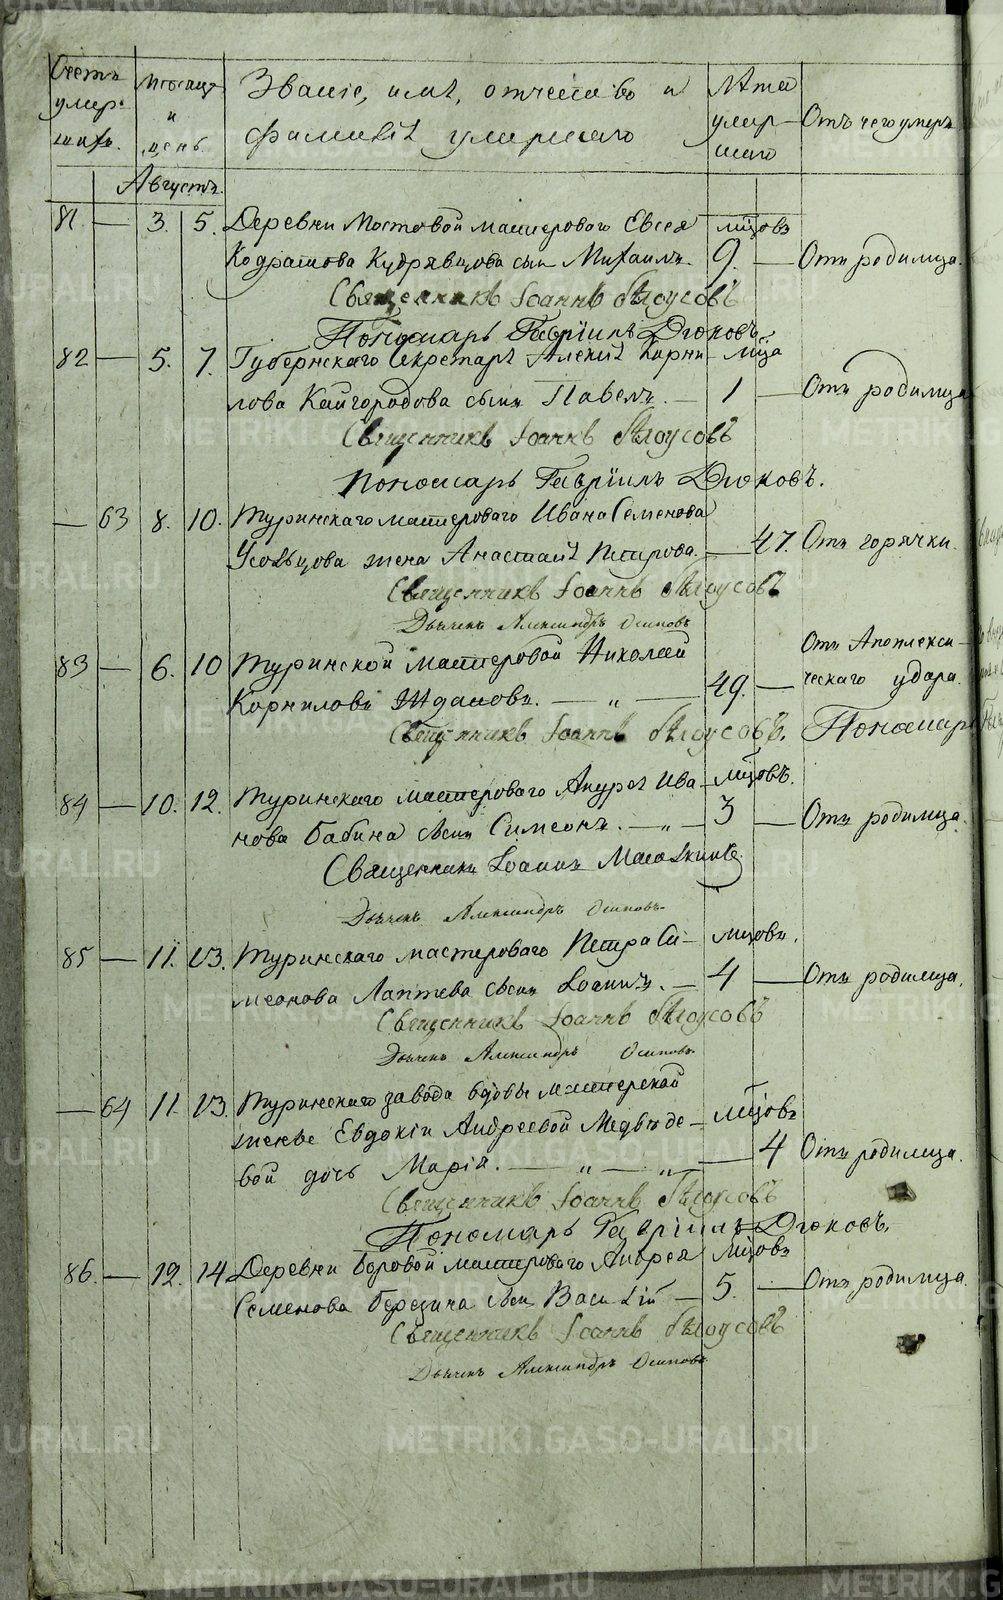 Счетъ умер-шихъ.
Мѣсяцъ и день
Званіе, имя, отчество и фамилія умершаго
Лѣта умер-шаго
Отъ чего умеръ
Августъ.
81 — 3. 5. Деревни Мостовой мастероваго Евсея мѣсцовъ
Кодратова Кудрявцова сынъ Михаилъ. 9. — Отъ родимца.
Священникъ Іоаннъ Бѣлоусовъ
Пономарь Гавріилъ Дюковъ.
82 — 5. 7. Губернскаго Секретаря Алексія Корни- мѣсца
лова Кайгородова сынъ Павелъ. — 1 — Отъ родимца
Священникъ Іоаннъ Бѣлоусовъ
Пономарь Гавріилъ Дюковъ.
— 63 8. 10. Туринскаго мастероваго Ивана Семенова
Усольцова жена Анастасія Петрова. — 47. Отъ горячки.
Священникъ Іоаннъ Бѣлоусовъ
Дьячекъ Александръ Осиповъ
83 — 6. 10 Туринской мастеровой Николай Отъ Апоплекси-
Корниловъ Ждановъ. — „ — 49. — ческаго удара.
Священникъ Іоаннъ Бѣлоусовъ. Пономарь
84 — 10. 12. Туринскаго мастероваго Андрея Ива- мѣсцовъ.
нова Бабина сынъ Симеонъ. — „ — 3 — Отъ родимца.
Священникъ Іоаннъ
Дьячекъ Александръ Осиповъ
85 — 11. 13. Туринскаго мастероваго Петра Си- мѣсцовъ.
меонова Лаптева сынъ Іоаннъ. — 4 — Отъ родимца.
Священникъ Іоаннъ Бѣлоусовъ
Дьячекъ Александръ Осиповъ
— 64 11. 13. Туринскаго завода вдовы мастерской
женки Евдокіи Андреевой Медвѣде- мѣсцовъ
вой дочь Марія. — „ — „ — 4 Отъ родимца.
Священникъ Іоаннъ Бѣлоусовъ
Пономарь Гавріилъ Дюковъ.
86. — 12. 14. Деревни Боровой мастероваго Андрея мѣсцовъ
Семенова Березина сынъ Василій — 5. — Отъ родимца.
Священникъ Іоаннъ Бѣлоусовъ
Дьячекъ Александръ Осиповъ
METRIKI.GASO-URAL.RU